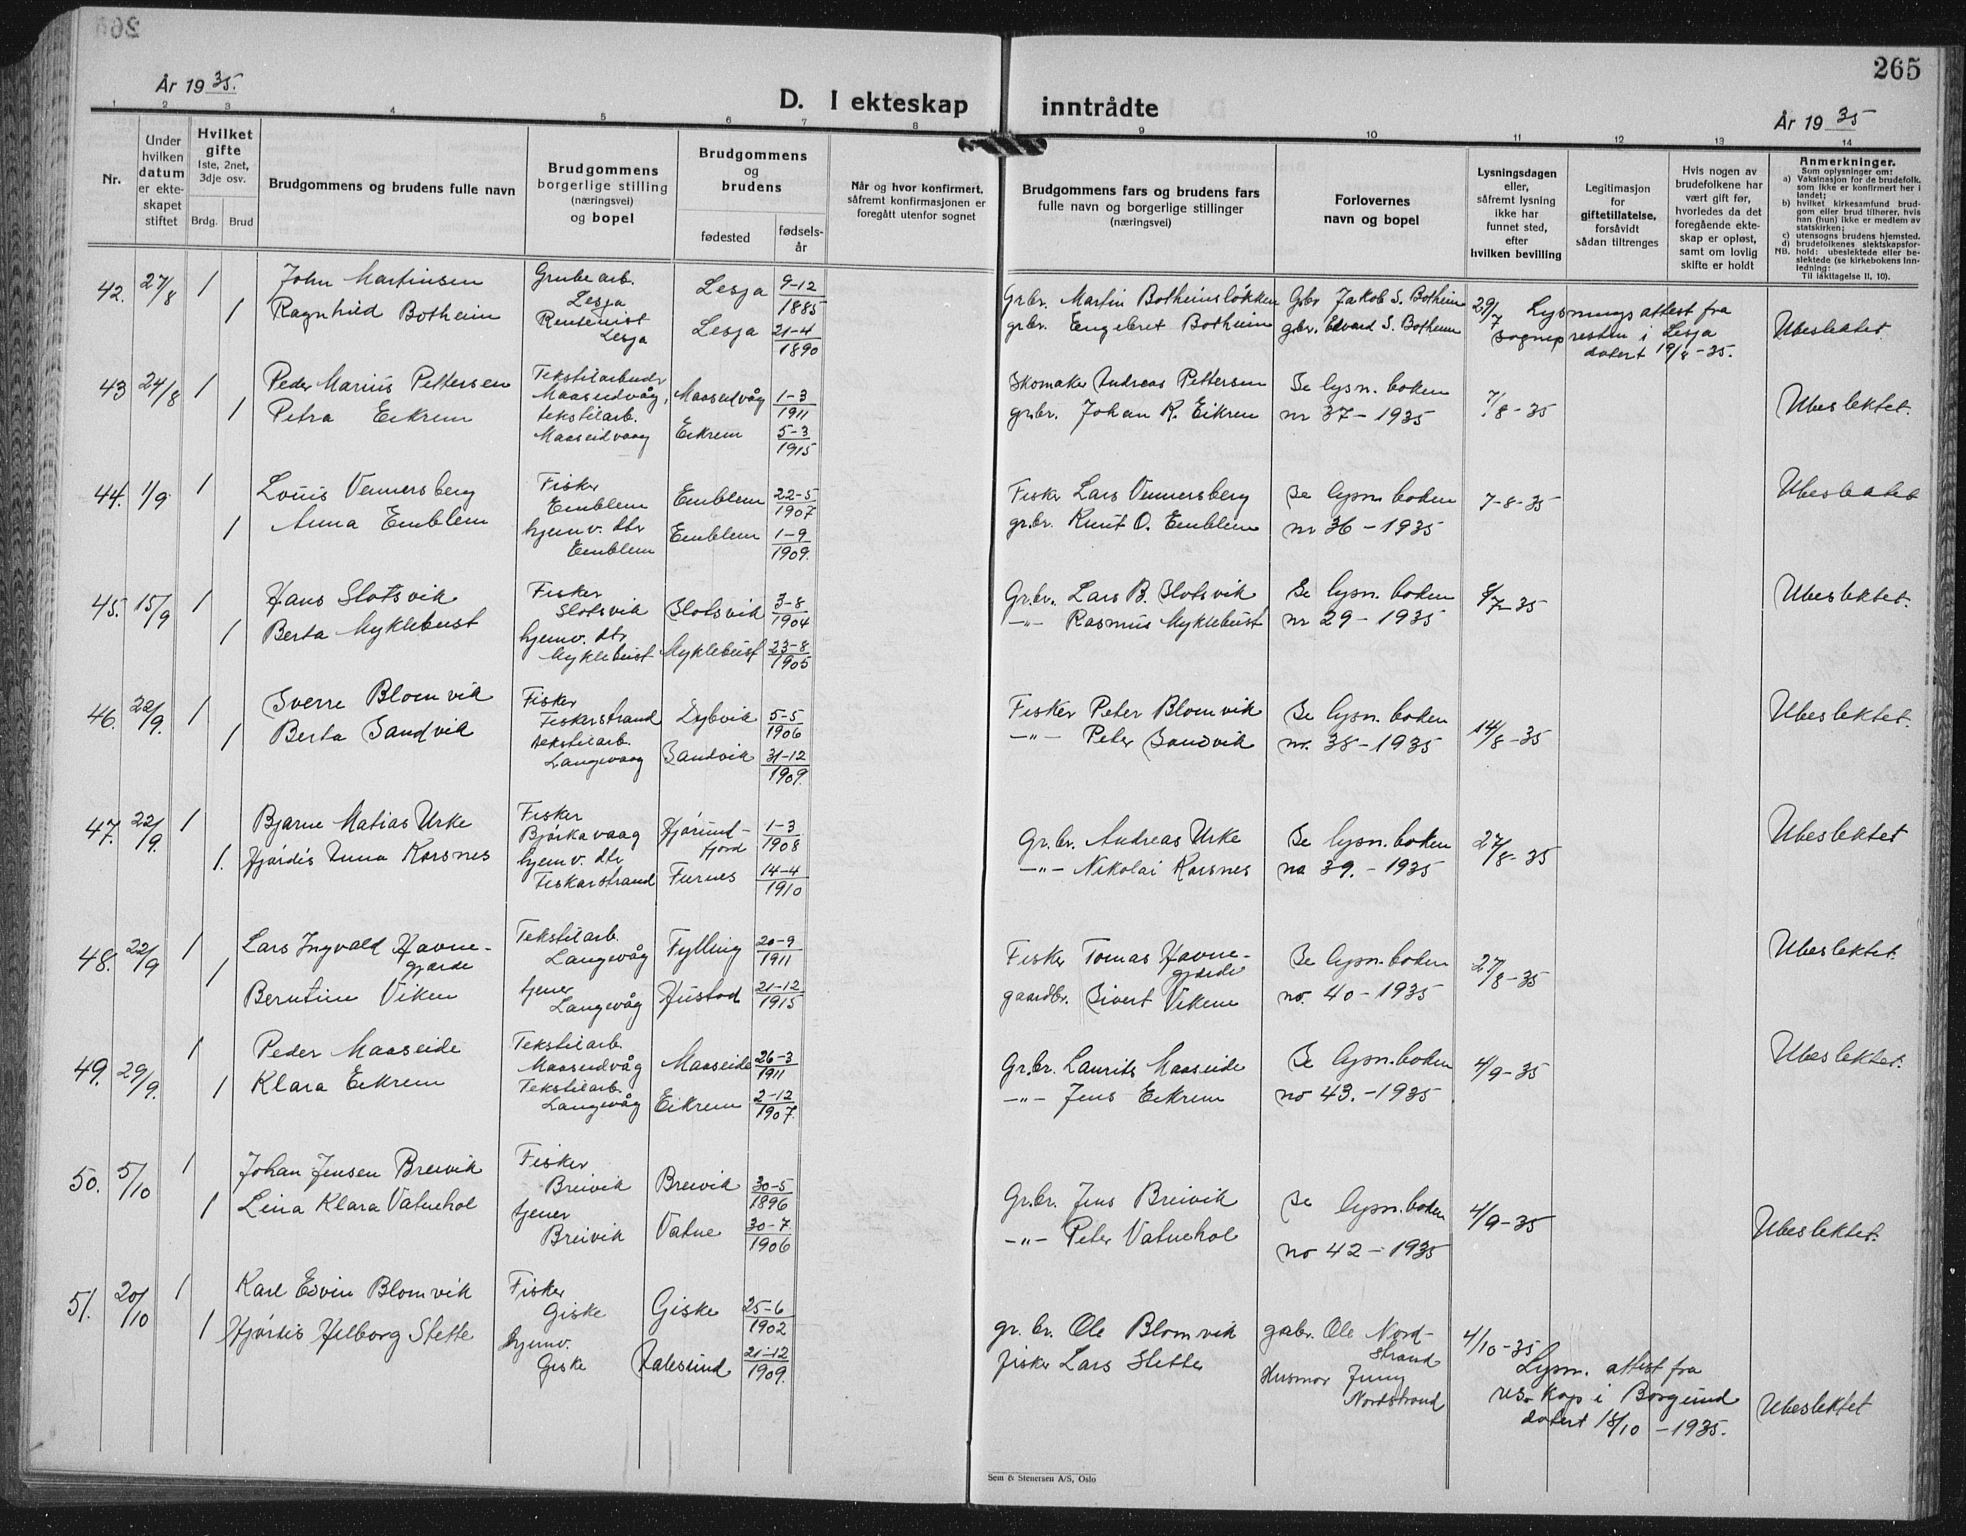 265
År 19 35.
D. I ekteskap inntrådte
År 19 35
1 2 3 4 5 6 7 8 9 10 11 12 13 14
Nr.
Under hvilken datum er ekteskapet stiftet
Hvilket gifte 1ste, 2net, 3dje osv.
Brdg. Brud
Brudgommens og brudens fulle navn
Brudgommens borgerlige stilling (næringsvei) og bopel
Brudgommens og brudens
fødested
fødselsår
Når og hvor konfirmert, såfremt konfirmasjonen er foregått utenfor sognet
Brudgommens fars og brudens fars fulle navn og borgerlige stillinger (næringsvei)
Forlovernes navn og bopel
Lysningsdagen eller, såfremt lysning ikke har funnet sted, efter hvilken bevilling
Legitimasjon for giftetillatelse, forsåvidt sådan tiltrenges
Hvis nogen av brudefolkene har vært gift før, hvorledes da det foregående ekteskap er opløst, samt om lovlig skifte er holdt
Anmerkninger.
Som oplysninger om:
a) Vaksinasjon for de brudefolk, som ikke er konfirmert her i landet;
b) hvilket kirkesamfund brudgom eller brud tilhører, hvis han (hun) ikke er medlem av statskirken;
c) utensogns brudens hjemsted.
d) brudefolkenes slektskapsforhold: ubeslektede eller beslektede (se kirkebokens Innledning:
NB. Til Iakttagelse II, 10).
42. 27/8 1 John Martinsen Grubearb. Lesja Lesja 9-12 1885 Grbr. Martin Botheimsløkken Grbr Jakob S. Botheim 29/7 Lysningsattest fra
1 Ragnhild Botheim Rentenist Lesja Lesja 21-4 1890 grbr. Engebret Botheim grbr. Edvard S. Botheim sognepresten i Lesja datert 19/8-35. Ubeslektet
43 24/8 1 Peder Marius Pettersen Tekstilarbeider Maaseidvåg, Maaseidvåg 1-3 1911 Skomaker Andreas Pettersen Se lysn. boken 7/8-35 Ubeslektet.
1 Petra Eikrem tekstilarb. Maaseidvaag Eikrem 5-3 1915 grbr. Johan K. Eikrem nr 37-1935
44. 1/9 1 Louis Vennersberg Fisker Emblem Emblem 22-5 1907 Fisker Lars Vennersberg Se lysn. boken 7-8-35 Ubeslektet
1 Anna Emblem hjemv. dtr Emblem Emblem 1-9 1909. gr.br. Knut O. Emblem nr 36-1935
45. 15/9 1 Hans Slotsvik Fisker Slotsvik Slotsvik 3-8 1904 Gr.br. Lars B. Slotsvik Se lysn. boken 9/7-35 Ubeslektet.
1 Berta Myklebust hjemv. dtr Myklebust Myklebust 23-8 1905 -"- Rasmus Myklebust nr 29-1935
46. 22/9. 1 Sverre Blomvik Fisker Fiskerstrand Dybvik 5-5 1906 Fisker Peter Blomvik Se lysn. boken 14/8-35 Ubeslektet.
1 Berta Sandvik tekstilarb. Langevaag Sandvik 31-12 1909. -"- Peter Sandvik nr. 38-1935
47. 22/9. 1 Bjarne Matias Urke Fisker Bjørkavaag Hjørundfjord 1-3 1908 Gr.br. Andreas Urke Se lysn. boken 27/8-35 Ubeslektet
1. Hjørdis Anna Korsnes hjemv. dtr Fiskarstrand Furnes 14-4 1910 -"- Nikolai Korsnes no 39.-1935
48. 22/9 1 Lars Ingvald Havnegjærde Tekstilarb. Langevåg Fylling 20-9 1911 Fisker Tomas Havnegjærde Se lysn. boken 27/8-35 Ubeslektet.
1 Berntine Viken tjener Langevåg Hustad 21-12 1915 gaardbr. Sivert Vikene no. 40-1935
49. 29/9. 1 Peder Maaseide Tekstilarb. Maaseidvåg Maaseide 26-3 1911 Gr.br. Laurits Maaseide Se lysn. boken 4/9-35 Ubeslektet.
1 Klara Eikrem Tekstilarb. Langevåg Eikrem 2-12 1907. -"- Jens Eikrem no 43.-1935
50. 5/10 1 Johan Jensen Breivik Fisker Breivik Breivik 30-5 1896 Gr.br. Jens Breivik Se lysn. boken 4/9-35 Ubeslektet.
1 Lina Klara Vatnehol tjener Breivik Vatne 30-7 1906 -"- Peter Vatnehol no 42-1935
51. 20/10 1 Karl Edvin Blomvik Fisker Giske Giske 25-6 1902 gr. br. Ole Blomvik garbr. Ole Nordstrand 4/10-35 Lysn. attest fra
1 Hjørdis Hilborg Stette hjemv. Giske Aalesund 21-12 1909. fisker Lars Stette Husmor Jenny Nordstrand res. kap i Borgund datert 18/10-1935. Ubeslektet
Sem & Stenersen A/S, Oslo